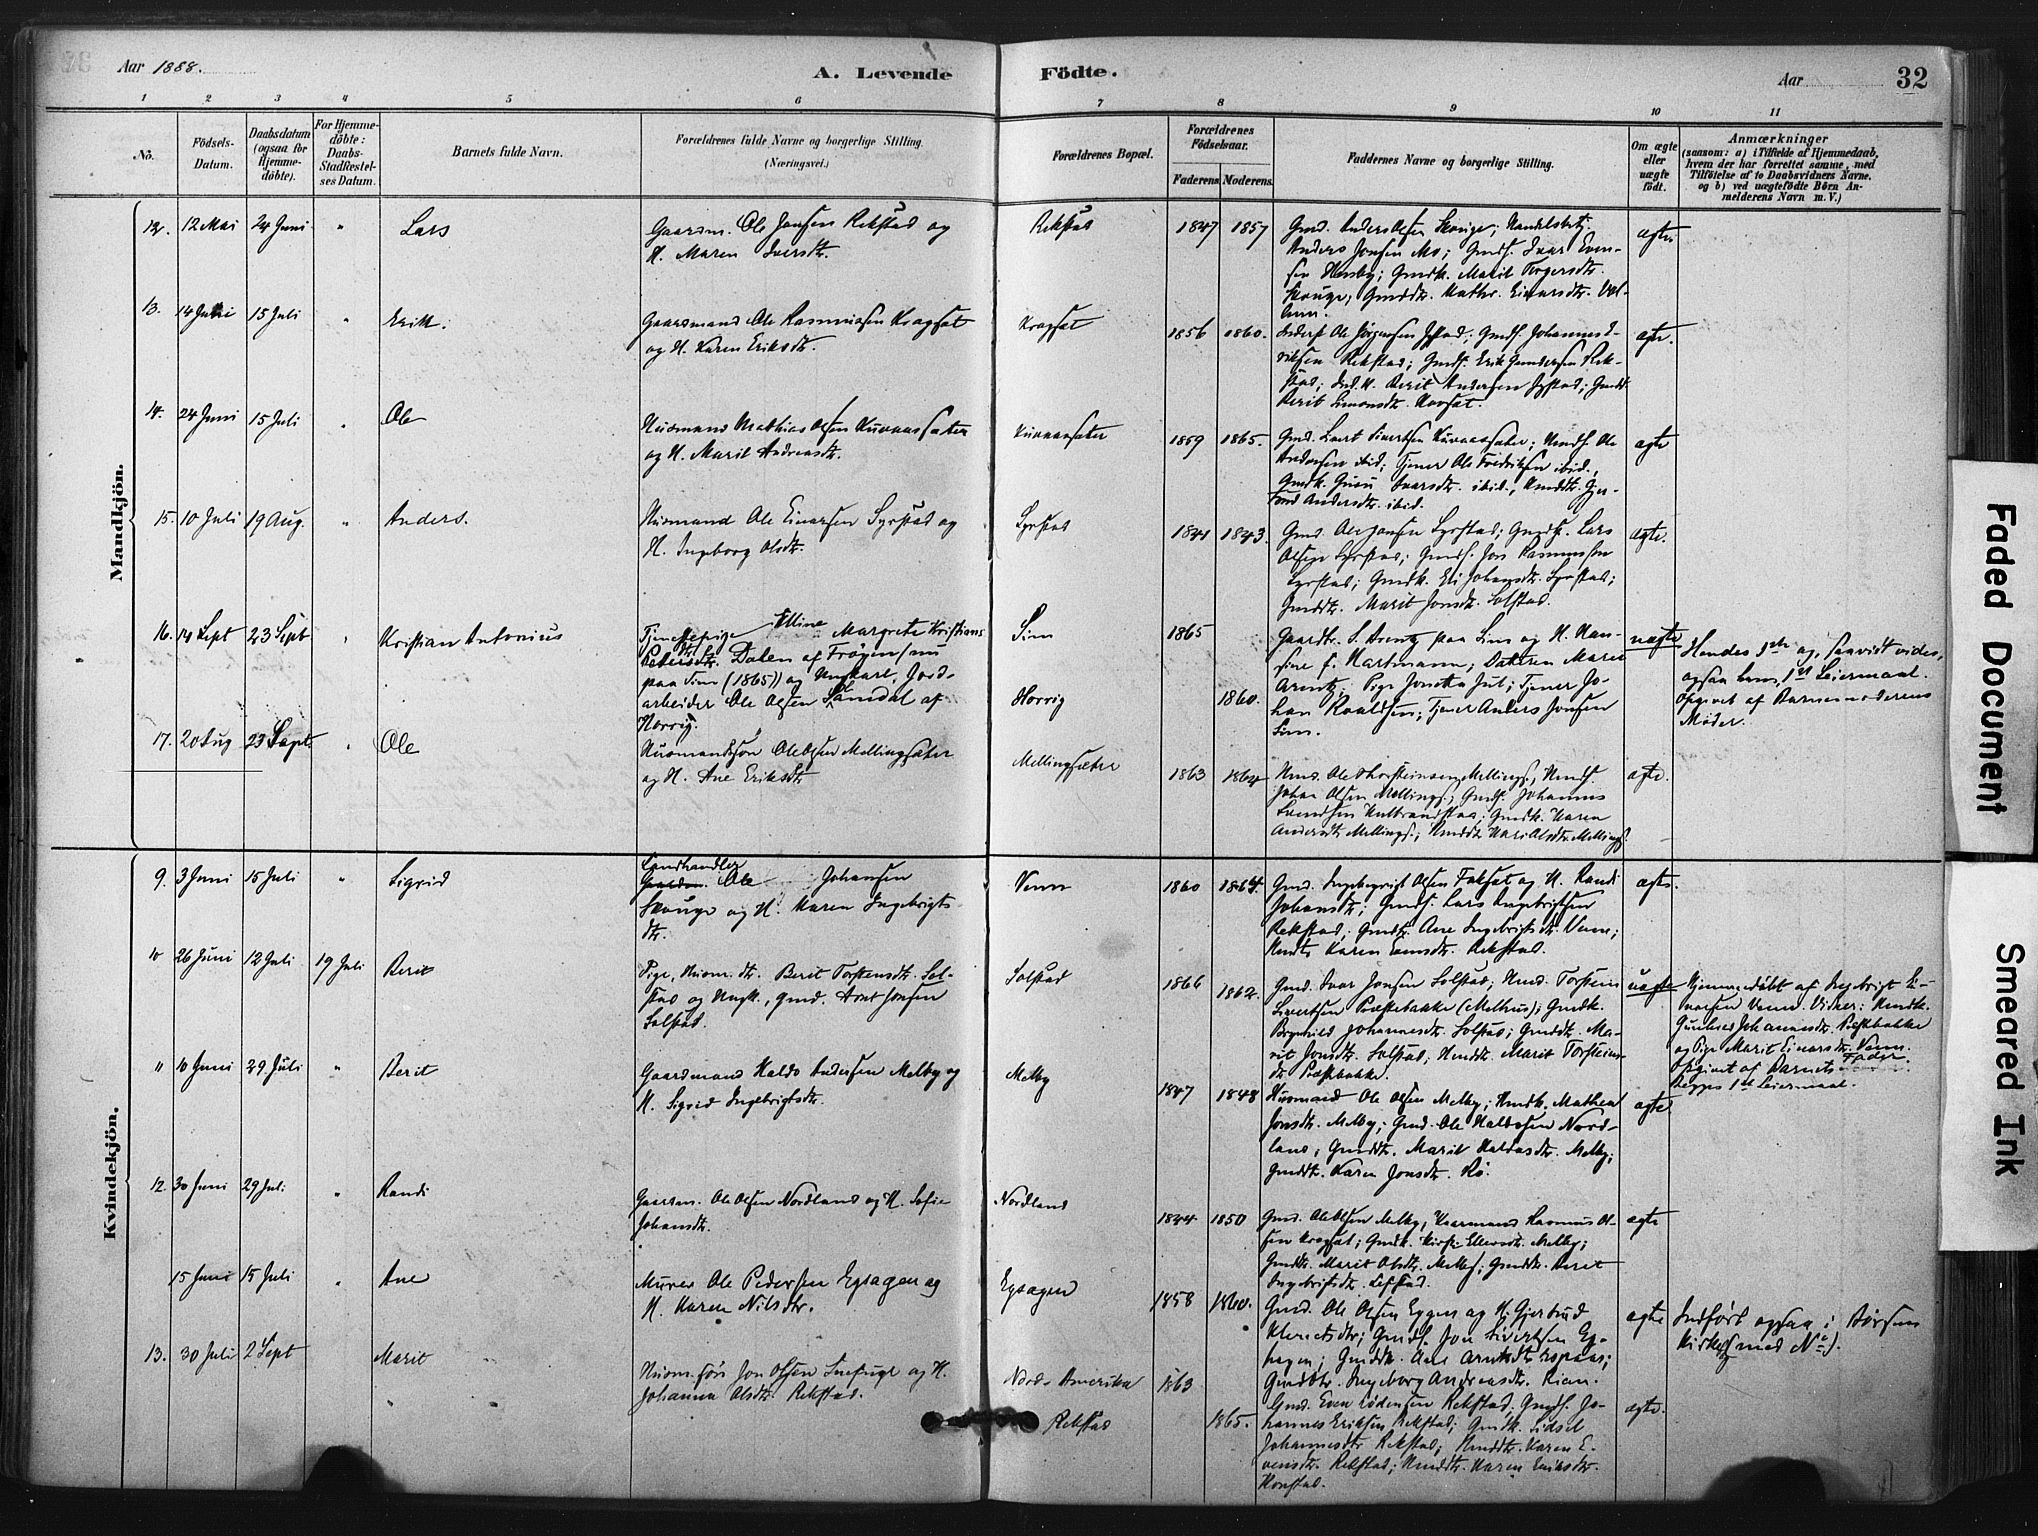 Aar 1888.
A. Levende
Födte.
Aar
32
1 2 3 4 5 6 7 8 9 10 11
No.
Födsels-
Datum.
Daabsdatum
(ogsaa for
Hjemme-
döbte).
For Hjemme-
döbte:
Daabs-
Stadfæstel-
ses Datum.
Barnets fulde Navn.
Forældrenes fulde Navne og borgerlige Stilling.
(Næringsvei.)
Forældrenes Bopæl.
Forældrenes
Födselsaar.
Faderens. Moderens.
Faddernes Navne og borgerlige Stilling.
Om ægte
eller
uægte
födt.
Anmærkninger
(saasom: a) i Tilfælde af Hjemmedaab,
hvem der har forrettet samme, med
Tilföielse af to Daabsvidners Navne,
og b) ved uægtefödte Börn An-
melderens Navn m. V.)
Mandkjön.
12. 12 Mai 24 Juni " Lars
Gaardm. Ole Jonsen Rekstad og
H. Maren Iversdtr.
Rekstad
1847 1857
Gmd. Anders Olsen Skauge; Handelsbetj.
Anders Jonsen Mo; Gmds. Ivar Even-
sen Husby; Gmdk. Marit Torgersdtr.
Skauge; Gmddtr. Kathr. Einarsdtr.
ægte
13. 15 Juli " Erik.
Gaardmand Ole Rasmussen Kragsæt
og H. Karen Eriksdtr.
Kragsæt
1856 1860.
Ole Jörgensen; Gmds. Johannes E-
riksen Rekstad; Gmds. Erik Gundersen Rek-
stad; H. Berit Andersen; Gmddtr.
Berit Simonsdtr.
ægte
14. 24 Juni 15 Juli " Ole
Husmand Mathias Olsen Kuvaassæter
og H. Marit Andreasdtr.
Kuvaassæter
1859 1865.
Gmd. Sivert Sivertsen Kuvaassæter; Hmds. Ole
Andersen ibid; Tjener Ole Fredriksen ibid.,
Gmdk. Guru Ivarsdtr. ibid., Hmddtr. Gjer-
trud Andersdtr. ibid.
ægte
15. 10 Juli 19 Aug. " Anders.
Husmand Ole Einarsen Syrstad og
H. Ingeborg Olsdtr.
Syrstad
1841 1843.
Gmd. Ole Jonsen Syrstad; Gmds. Lars
Olsen Syrstad; Gmds. Jon Rasmussen
Syrstad; Gmdk. Eli Johansdtr. Syrstad;
Gmddtr. Marit Jonsdtr. Solstad.
ægte.
16. 14 Sept 23 Sept " Kristian Antonius
Tjenestepige Elline Margrete Kristians
dtr. Dalen af Fröyen (nu
paa Sim (1865)) og Ungkarl, Jord-
arbeider Ole Olsen Samdal af
Horrig.
Sim
Horrig
1865
1860.
Gaardbr. S. Arentz paa Sim og H. Han-
sine f. Hartmann; Datteren Marie
Arentz; Pige Jonetta Jul; Tjener Jo-
han Roaldsen; Tjener Anders Jonsen
Sim.
uægte
Hendes 3die og, saavidt vides,
ogsaa hans 1ste Leiermaal.
Opgivet af Barnemoderens
Moder.
17. 20 Aug 23 Sept. " Ole
Husmandssön Ole Olsen Mellingsæter
og H. Ane Eriksdtr
Mellingsæter
1863 1864
Hmd. Ole Thorsteinsen Mellings.; Hmds.
Johan Olsen Mellings; Gmds. Johannes
Sivertsen Kulbrandstad; Gmdk. Karen
Andersdtr Mellings.; Hmddtr Kari Olsdtr. Mellings
ægte.
Kvindekjön.
9. 3 Juni 15 Juli " Sigrid
Landhandler
Gaardm. Ole Johansen
Skauge og H. Karen Ingebrigts-
dtr.
Venn
1860 1864.
Gmd. Ingebrigt Olsen Foksæt og H. Randi
Johansdtr; Gmds. Lars Ingebrigtsen
Rekstad; Gmddtr. Ane Ingebrigtsdtr. Venn;
Karen Rekstad.
ægte.
10 26 Juni 12 Juli 19 Juli Berit
Pige, Husm. dtr. Berit Torsteinsdtr. Sol-
stad og Ungk., Gmd. Arnt Jonsen
Solstad.
Solstad
1866 1862.
Gmd. Ivar Jonsen Solstad; Hmd. Torstein
Sivertsen Præstebakke (Melhus); Gmdk.
Borghild Johannesdtr. Solstad; Gmddtr. Ma-
rit Jonsdtr. Solstad; Hmddtr. Marit Torsteins-
dtr Præstbakke.
uægte
Hjemmedöbt af Ingebrigt Ei-
narsen Venn. Vidner: Hmdk.
Gunhild Johannesdtr. Præstbakke
og Pige Marit Einarsdtr. Venn.
Opgivet af Barnets Fader.
Begges 1ste Leiermaal.
11 10 Juni 29 Juli " Berit
Gaardmand Haldo Andersen Melby og
H. Sigrid Ingebrigtsdtr.
Melby
1847 1848
Husmand Ole Olsen Melby; Hmdk. Mathea
Jonsdtr. Melby; Gmd. Ole Haldosen Nord-
land; Gmddtr. Marit Haldosdtr. Melby;
Gmddtr. Karen Jonsdtr. Rö.
ægte
12. 30 Juni 29 Juli " Randi
Gaardm. Ole Olsen Nordland og H. Sofie
Johansdtr.
Nordland
1844 1850
Gmd. Ole Olsen Melby; Gaardmand Rasmus Ol-
sen Kragsæt; Gmdk. Kirsti Ellevsdtr. Melby;
Gmddtr. Marit Olsdtr. Melby; Gmddtr. Berit
Ingebrigtsdtr.
ægte
15 Juni 15 Juli " Ane
Murer Ole Pedersen Eghagen og
H. Karen Nilsdtr.
Eghagen
1858 1860.
Gmd. Ole Olsen Eggen og H. Gjertrud
Gmds. Jon Sivertsen Eg-
hagen; Gmddtr. Ane Arntsdtr
Gmddtr. Ingeborg Andreasdtr. Rian.
ægte
Indfört ogsaa i Börsen
Kirkebog (med No).
13. 30 Juli 2 Sept " Marit
Husm.sön Jon Olsen Snefugl og H.
Johanna Olsdtr. Rekstad.
Nord-Amerika
Rekstad
1863
1865.
Gmd. Even Rekstad; Gmds. Jo-
hannes Eriksen Rekstad; Gmdk. Sidsel
Johannesdtr Rekstad; Hmddtr. Karen E-
vensdtr. Rekstad; Hmddtr. Karen Eriksdtr.
ægte.
Faded Document
Smeared Ink